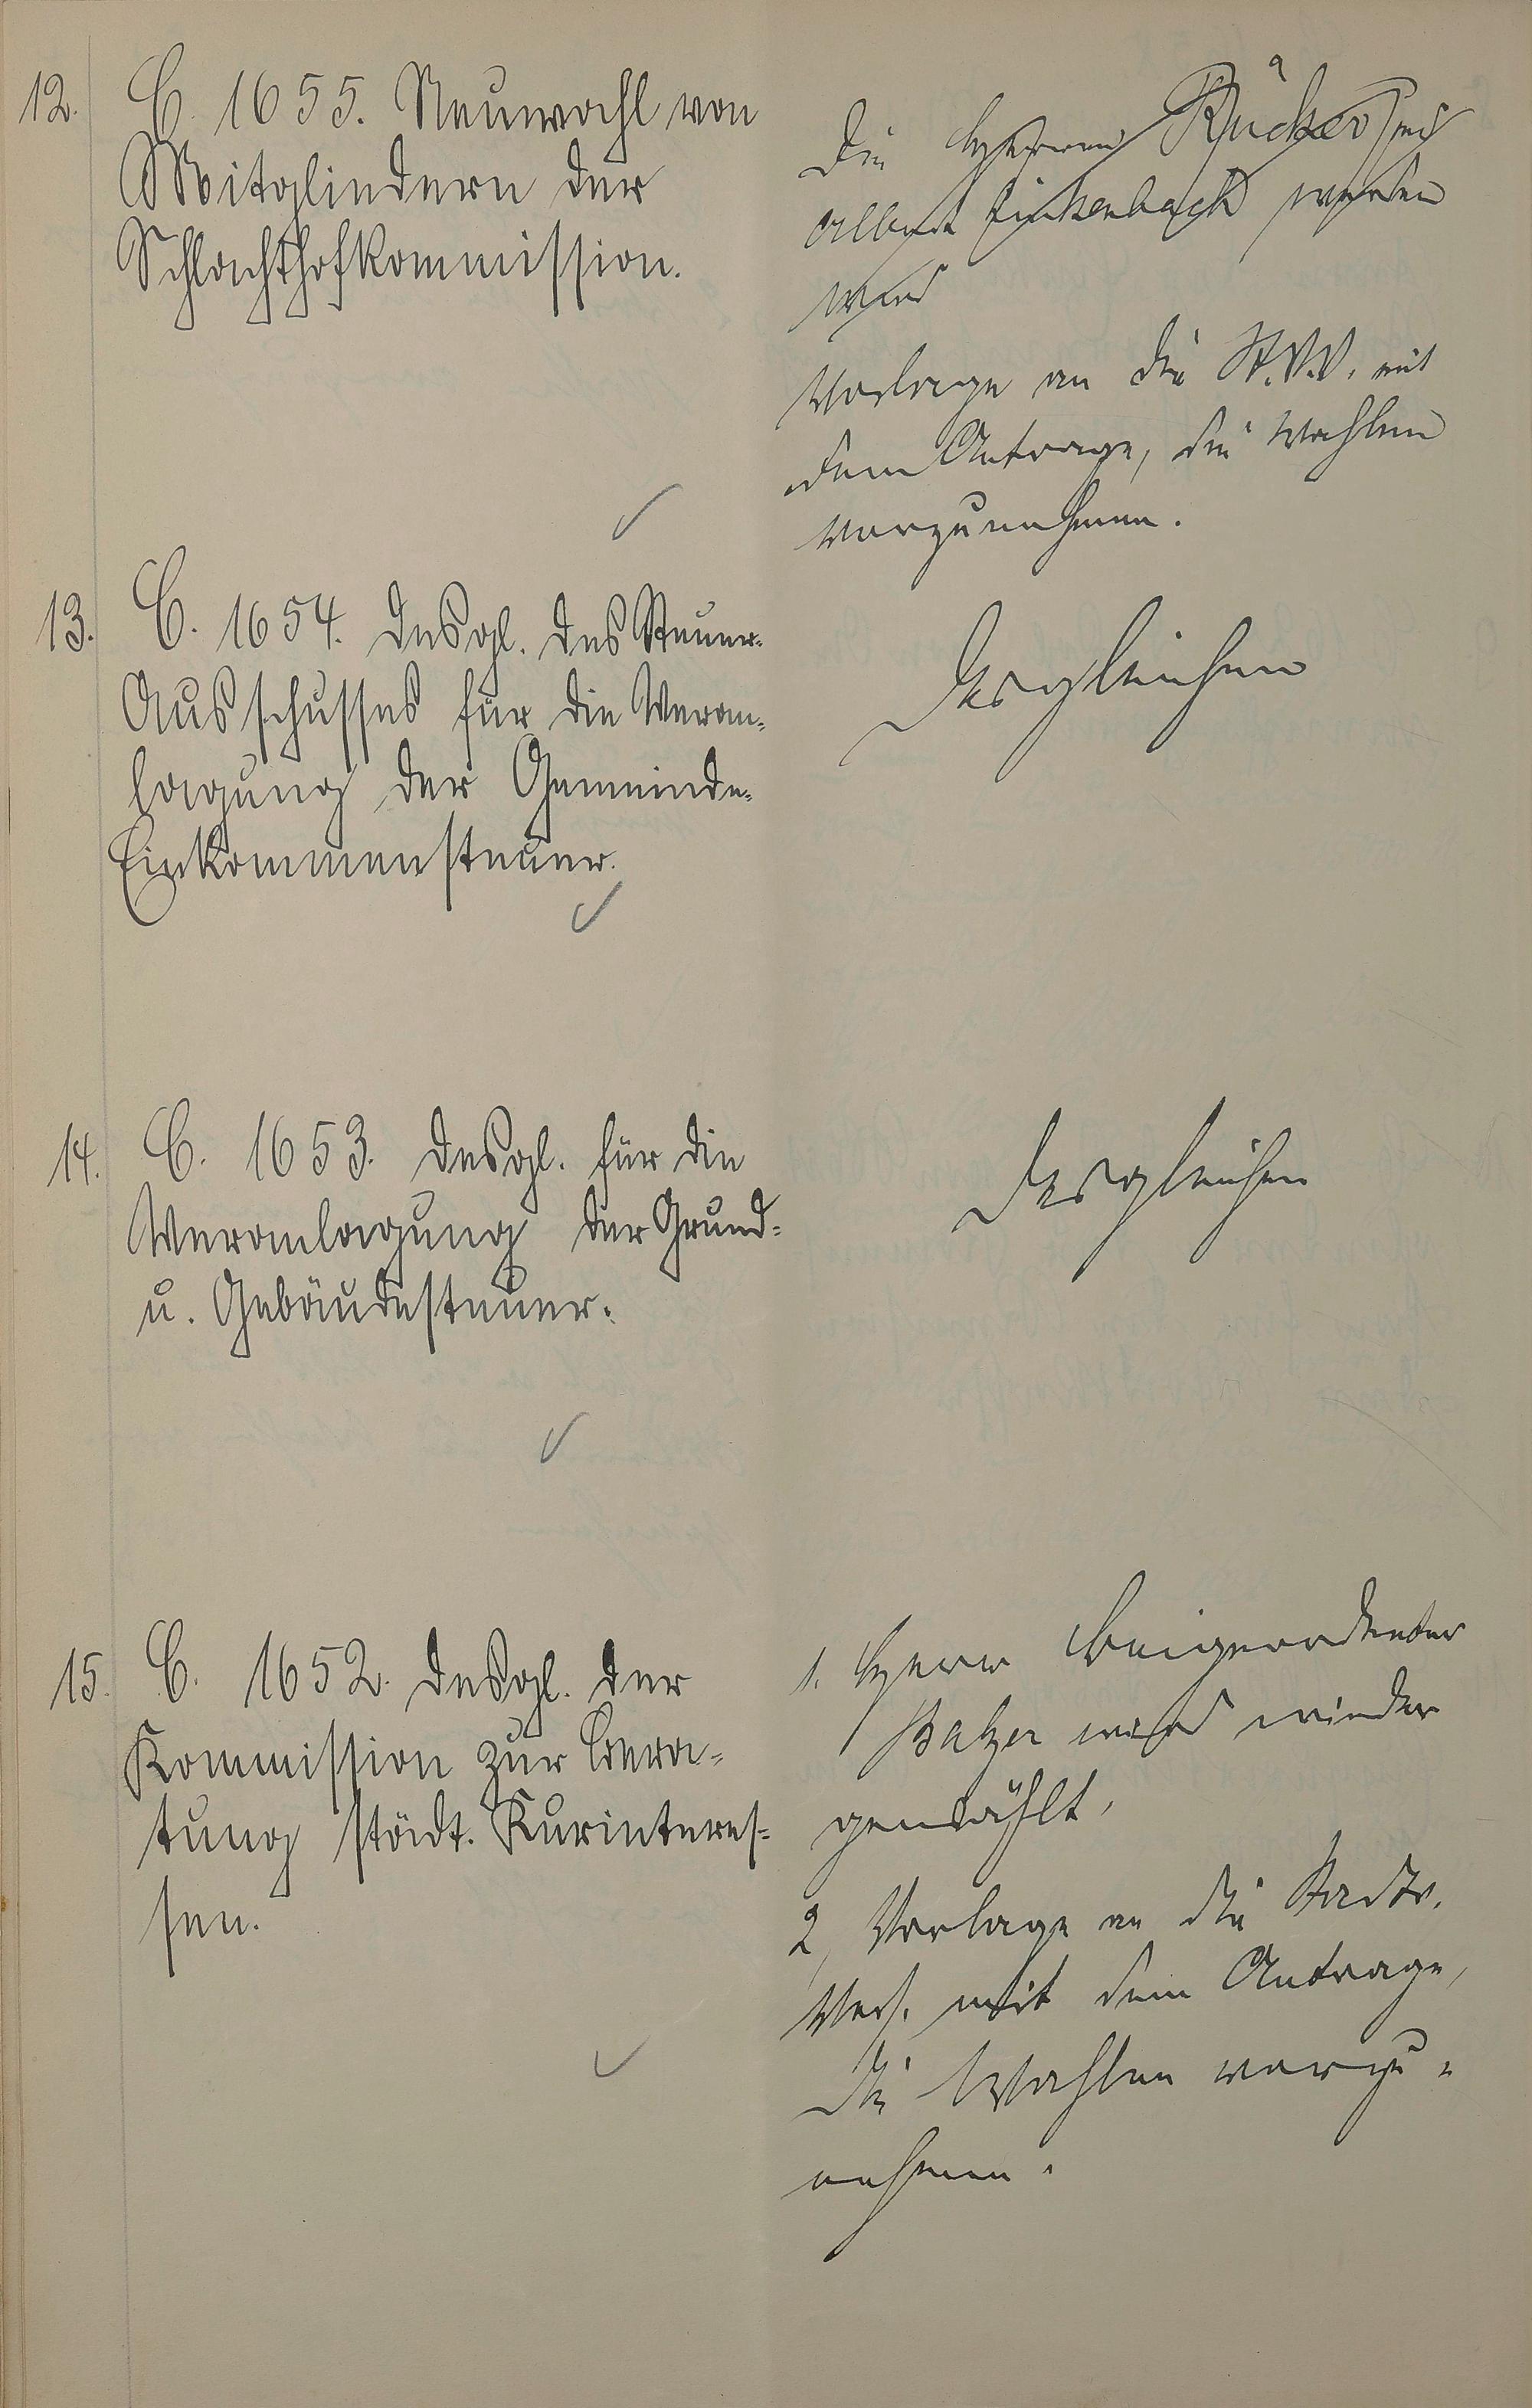 12. C. 1655. Neuwahl von
Mitgliedern der
Schlachthofkommission.
Die Herren Rücker und
Albert Finkenbach werden
wird
Vorlage an die St.V.V. mit
dem Antrage, die Wahlen
vorzunehmen.
13. C. 1654. Desgl. des Steuer-
Ausschusses für die Veran-
lagung der Gemeinde-
Einkommensteuer.
Desgleichen
14. C. 1653. Desgl. für die
Veranlagung der Grund-
u. Gebäudesteuer.
Desgleichen
15. C. 1652. Desgl. der
Kommission zur Bera-
tung städt. Kurinteres-
sen.
1. Herr Beigeordneter
Balzer wird wieder
gewählt,
2, Vorlage an die Stadtv.
Vers. mit dem Antrage,
die Wahlen vorzu-
nehmen.